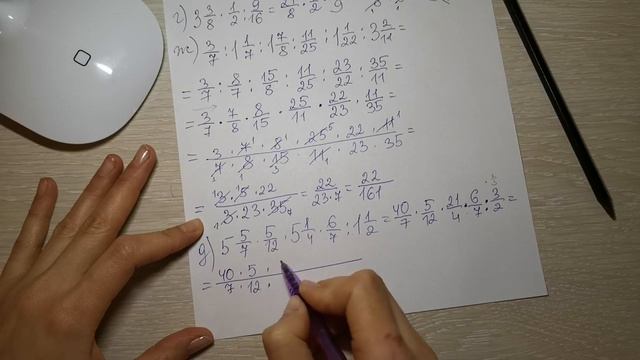 г) 3 3/8 · 1/2 : 9/16 = 27/8 · 1/2 ·
ж) 3/7 : 1 1/7 : 1 7/8 : 11/25 : 1 1/22 : 3 2/11 =
= 3/7 : 8/7 : 15/8 : 11/25 : 23/22 : 35/11 =
= 3/7 · 7/8 · 8/15 · 25/11 · 22/23 · 11/35 =
= 3 · 7 · 8 · 25 · 22 · 11 / 7 · 8 · 15 · 11 · 23 · 35 =
= 3 · 5 · 22 / 3 · 23 · 35 = 22 / 23 · 7 = 22/161
д) 5 5/7 · 5/12 · 5 1/4 · 6/7 : 1 1/2 = 40/7 · 5/12 · 21/4 · 6/7 : 3/2 =
= 40 · 5 · / 7 · 12 ·